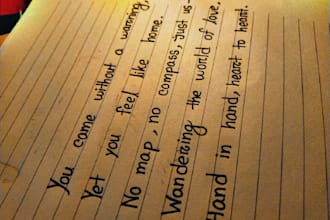 You came without a warning,
Yet you feel like home.
No map, no compass, just us-
Wandering the world of love,
Hand in hand, heart to heart.